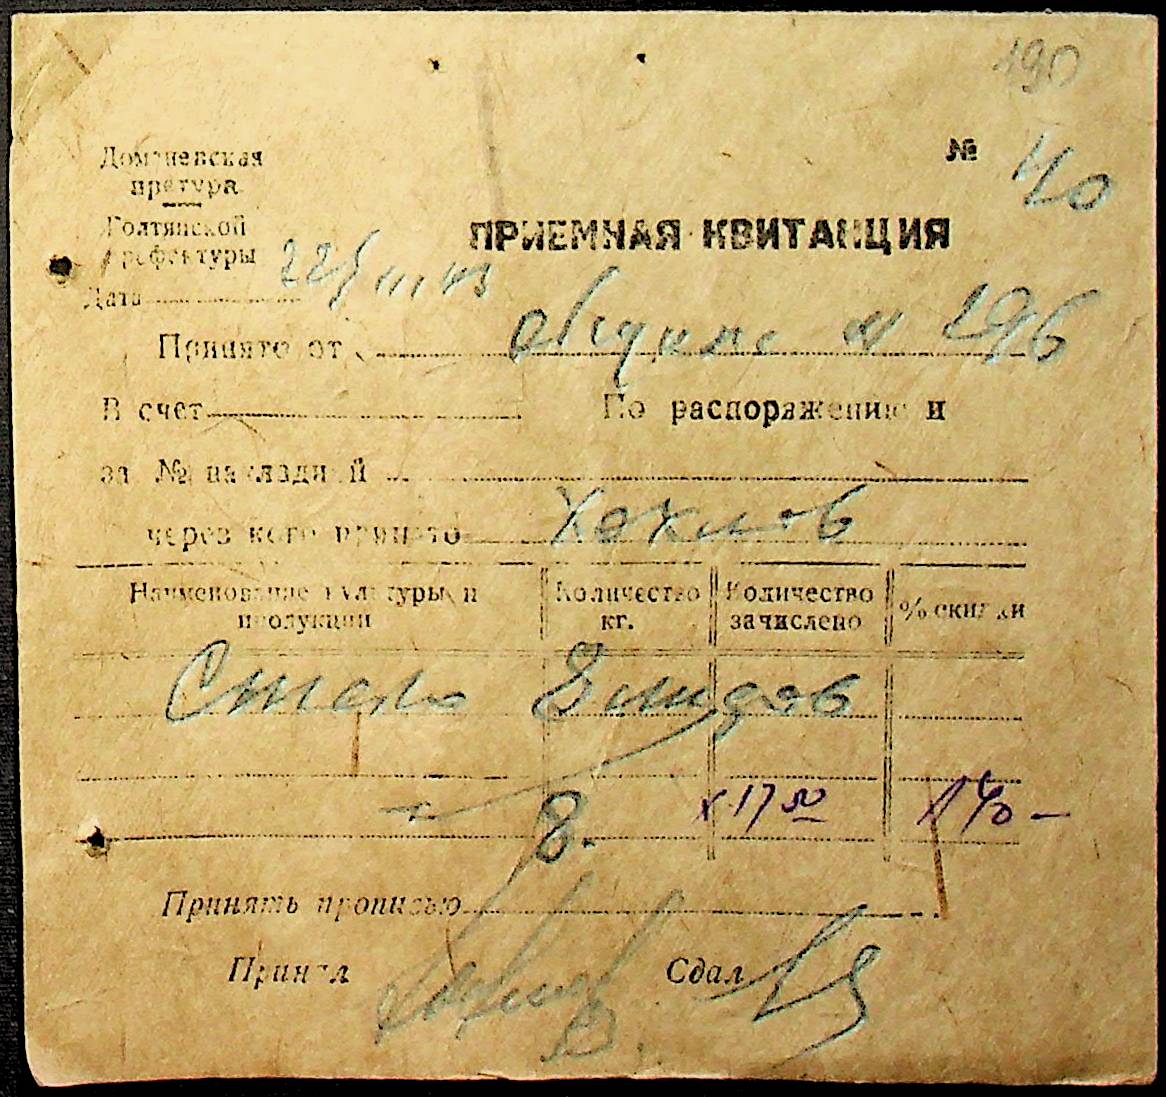 190
№ 40
Доманевская
претура
Голтянской
префектуры
ПРИЕМНАЯ КВИТАНЦИЯ
Дата 22/III 43
Принято от общины № 296
В счет По распоряжению и
за № накладной
через кого принято Хохлов
Наименование культуры и продукции Количество кг. Количество зачислено % скидки
8 пудов
8. х 17 50 140 —
Принять прописью
Принял Сдал